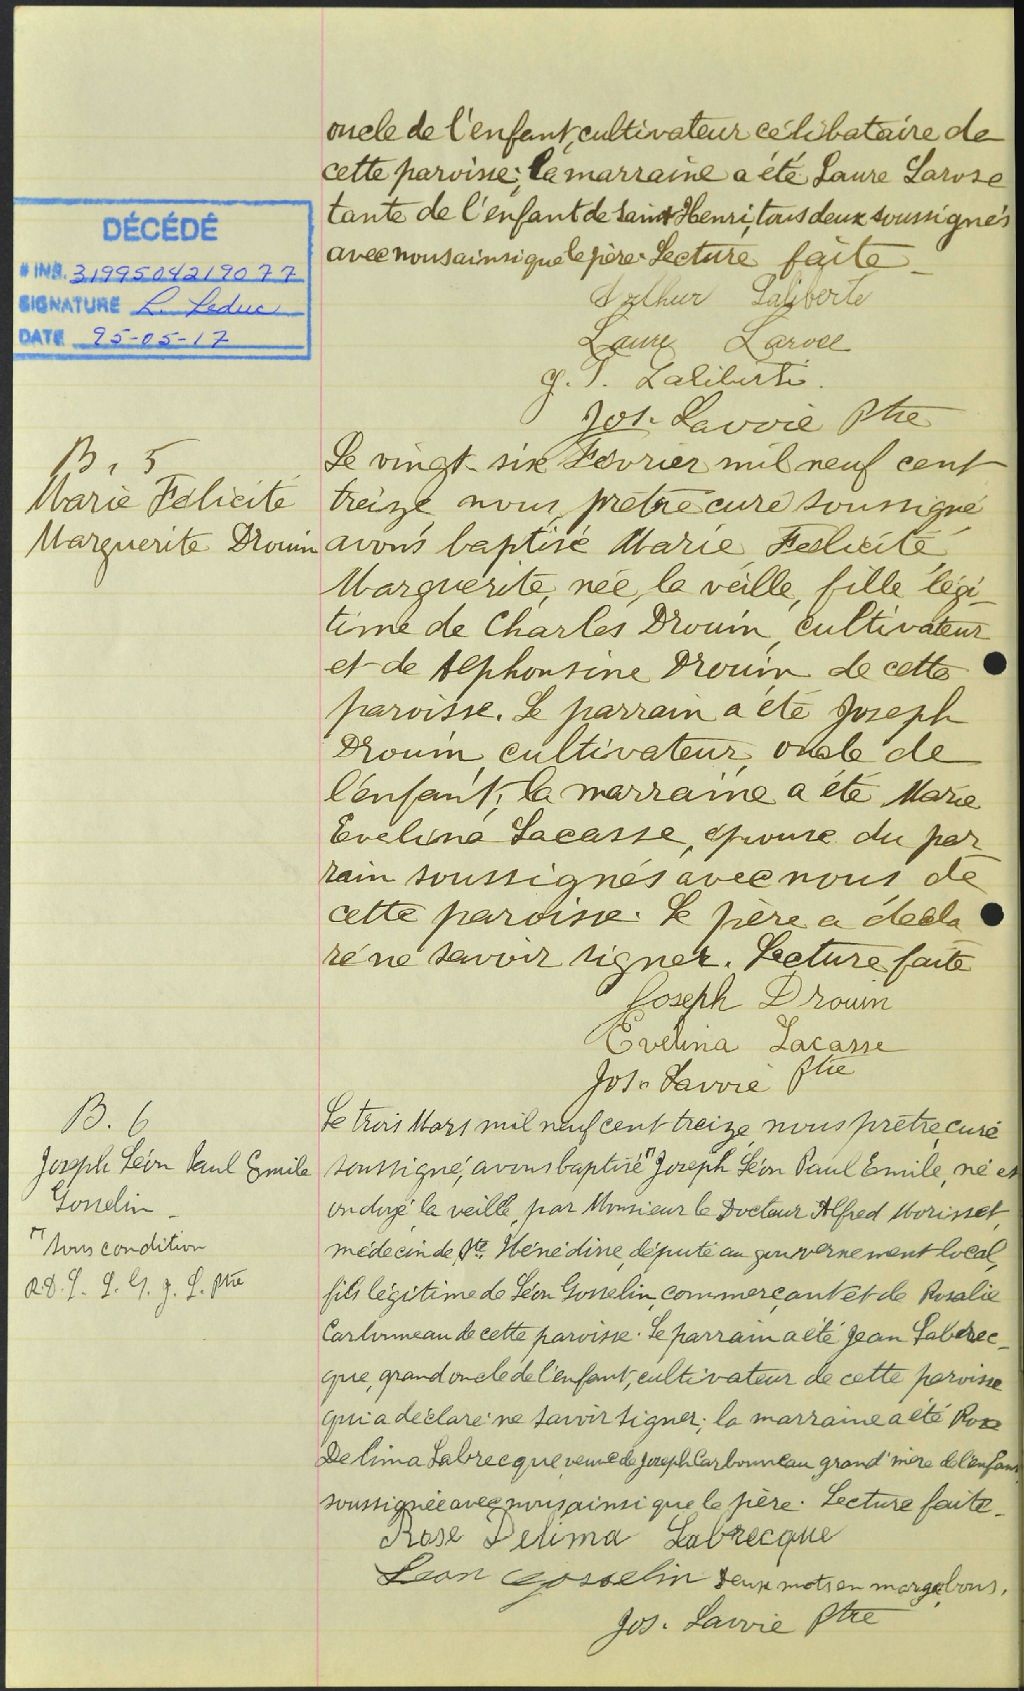 oncle de l'enfant, cultivateur célibataire de
cette paroisse; la marraine a été Laure Larose
tante de l'enfant de Saint Henri, tous deux soussignés
avec nous ainsi que le père. Lecture faite
DÉCÉDÉ
# INS. 3199504219077
SIGNATURE L. Leduc
DATE 95-05-17
Arthur Laliberté
Laure Larose
J. T. Laliberté.
Jos. Lavoie Ptre
B. 5
Marie Félicité
Marguerite Drouin
Le vingt-six Février mil neuf cent
treize nous, prêtre curé soussigné
avons baptisé Marie Félicité
Marguerite, née la veille, fille légi-
time de Charles Drouin, cultivateur
et de Alphonsine Drouin de cette
paroisse. Le parrain a été Joseph
Drouin, cultivateur, oncle de
l'enfant; la marraine a été Marie
Evelina Lacasse, épouse du par
rain soussignés avec nous de
cette paroisse. Le père a décla
ré ne savoir signer. Lecture faite
Joseph Drouin
Evelina Lacasse
Jos. Lavoie Ptre
B. 6
Joseph Léon Paul Emile
Gosselin
sous condition
R. D. L. L. G. J. L. ptre
Le trois Mars mil neuf cent treize, nous prêtre curé
soussigné, avons baptisé Joseph Léon Paul Emile, né et
ondoyé la veille, par Monsieur le Docteur Alfred Morisset,
médecin de Ste Hénédine, député au gouvernement local,
fils légitime de Léon Gosselin, commerçant et de Rosalie
Carbonneau de cette paroisse. Le parrain a été Jean Labrec-
que, grand oncle de l'enfant, cultivateur de cette paroisse
qui a déclaré ne savoir signer; la marraine a été Rose
Delima Labrecque, veuve de Joseph Carbonneau grand'mère de l'enfant
soussignée avec nous ainsi que le père. Lecture faite
Rose Delima Labrecque
Leon Gosselin deux mots en marge bons.
Jos. Lavoie Ptre